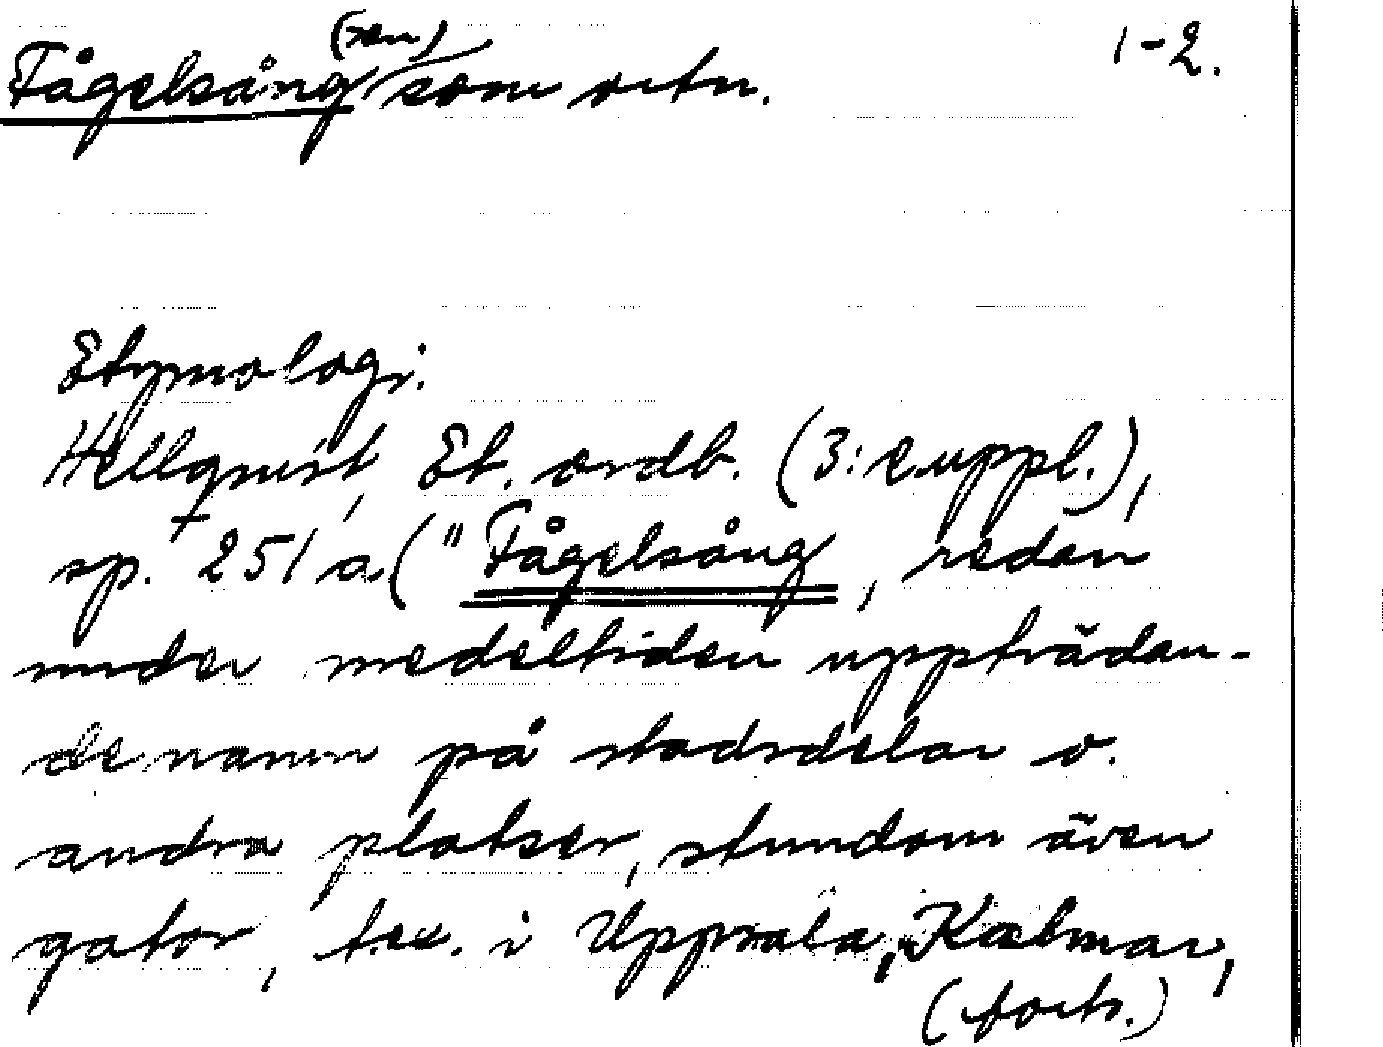 Fågelsång(en) som ortn. 1-2.
Etymologi:
Hellquist, Et. ordb. (3:e uppl.),
sp. 251 a. ("Fågelsång, redan
under medeltiden uppträdan-
de namn på stadsdelar o.
andra platser, stundom även
gator, t.ex. i Uppsala, Kalmar,
(forts.)